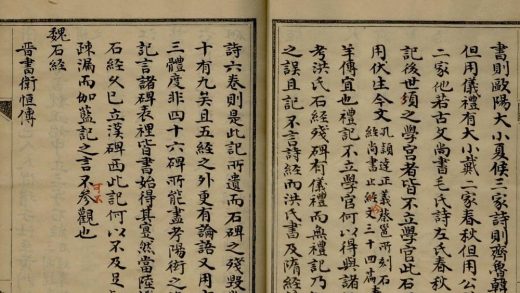 書則歐陽大小夏侯三家詩則齊魯韓
但用儀禮有大小戴二家春秋但用公
二家他若古文尚書毛氏詩左氏春秋
記後世之學官者皆不立學官此石
用伏生今文
孔頴達正義蔡邕所刻石
經尚書止三十四篇
羊傳宜也禮記不立學官何以得與諸
考洪氏石經殘碑有儀禮而無禮記乃
之誤且記不言詩經而洪氏書及隋經
詩六卷則是此記所遺而石碑之殘毀
十有九矣且五經之外更有論語又用
三體度非四十六碑所能盡考陽衒之
記言諸碑表裡皆書始得其寔然當陸
石經久已立漢碑西此記何以不及足
疎漏而伽藍記之言不可不參觀也
魏石經
晉書衛恒傳